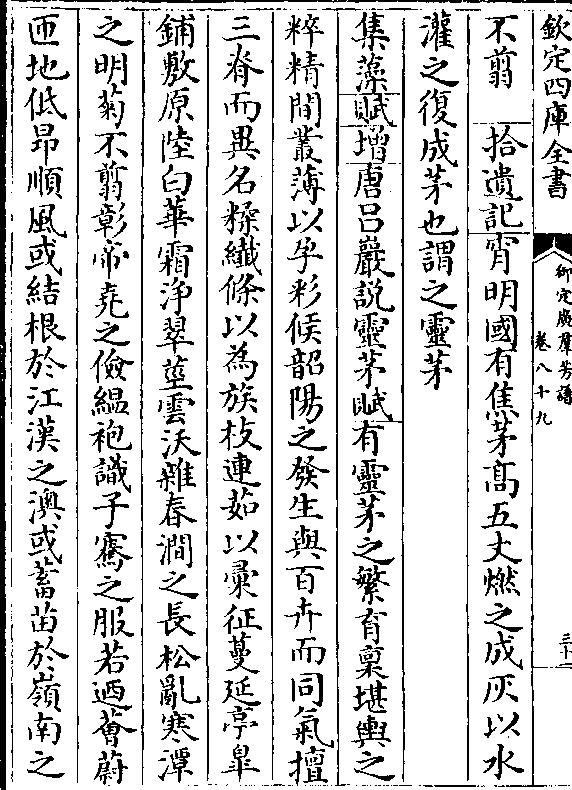 欽定四庫全書
御定廣羣芳譜
卷八十九
三十二
不翦　拾遺記宵明國有焦茅髙五丈燃之成灰以水
灌之復成茅也謂之靈茅
集藻賦增唐吕巖説靈茅賦有靈茅之繁育稟堪輿之
粹精間叢薄以孚彩候韶陽之發生與百卉而同氣擅
三脊而異名糅纎條以為族枝連茹以彚征蔓延亭皐
鋪敷原陸白華霜浄翠莖雲沃雜春澗之長松亂寒潭
之明菊不翦彰帝堯之儉緼袍識子騫之服若迺薈蔚
匝地低昂順風或結根於江漢之澳或蓄苗於嶺南之